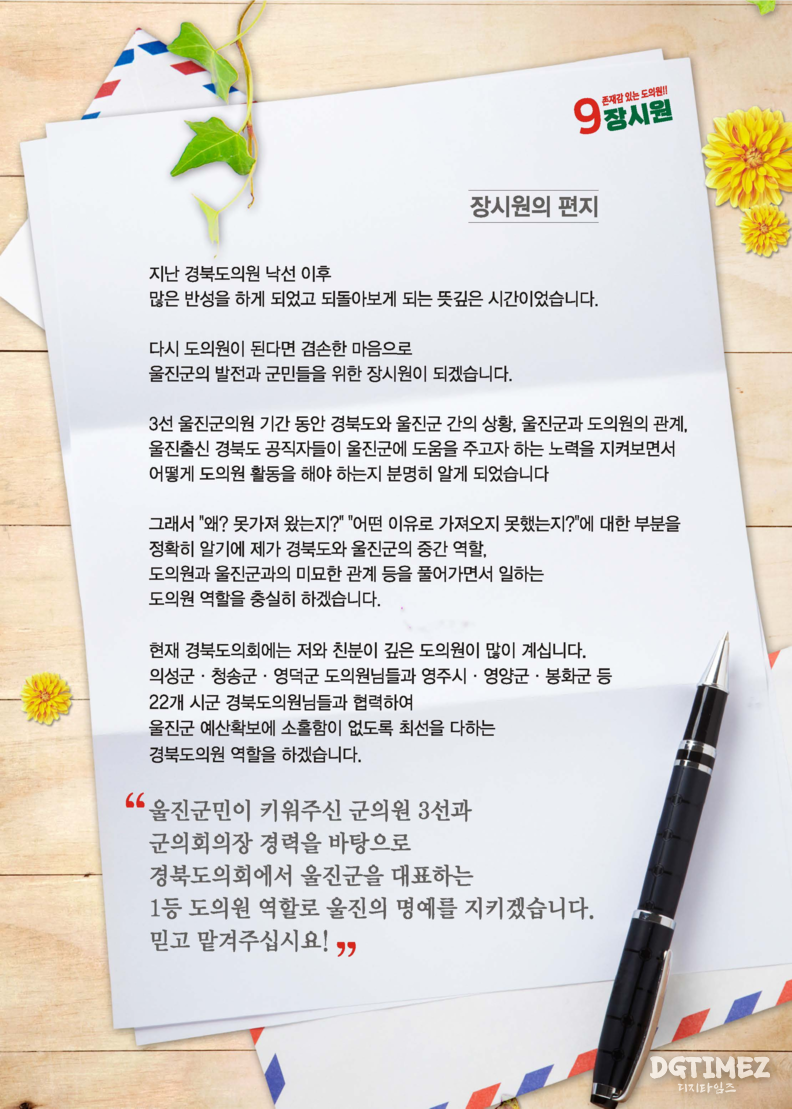 존재감 있는 도의원!!
9 장시원
장시원의 편지
지난 경북도의원 낙선 이후
많은 반성을 하게 되었고 되돌아보게 되는 뜻깊은 시간이었습니다.
다시 도의원이 된다면 겸손한 마음으로
울진군의 발전과 군민들을 위한 장시원이 되겠습니다.
3선 울진군의원 기간 동안 경북도와 울진군 간의 상황, 울진군과 도의원의 관계,
울진출신 경북도 공직자들이 울진군에 도움을 주고자 하는 노력을 지켜보면서
어떻게 도의원 활동을 해야 하는지 분명히 알게 되었습니다
그래서 "왜? 못가져 왔는지?" "어떤 이유로 가져오지 못했는지?"에 대한 부분을
정확히 알기에 제가 경북도와 울진군의 중간 역할,
도의원과 울진군과의 미묘한 관계 등을 풀어가면서 일하는
도의원 역할을 충실히 하겠습니다.
현재 경북도의회에는 저와 친분이 깊은 도의원이 많이 계십니다.
의성군 · 청송군 · 영덕군 도의원님들과 영주시 · 영양군 · 봉화군 등
22개 시군 경북도의원님들과 협력하여
울진군 예산확보에 소홀함이 없도록 최선을 다하는
경북도의원 역할을 하겠습니다.
“울진군민이 키워주신 군의원 3선과
군의회의장 경력을 바탕으로
경북도의회에서 울진군을 대표하는
1등 도의원 역할로 울진의 명예를 지키겠습니다.
믿고 맡겨주십시요!”
DGTIMEZ
디지타임즈